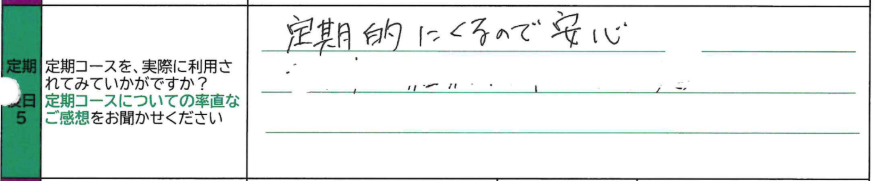 定期的にくるので安心
定期
定期コースを、実際に利用さ
れてみていかがですか？
定期コースについての率直な
5
ご感想をお聞かせください